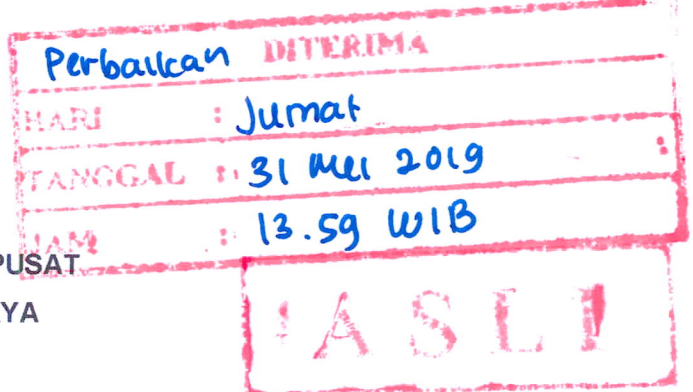 Perbaikan DITERIMA
HARI : Jumat
TANGGAL : 31 Mei 2019
JAM : 13.59 WIB
PUSAT
YA
ASLI